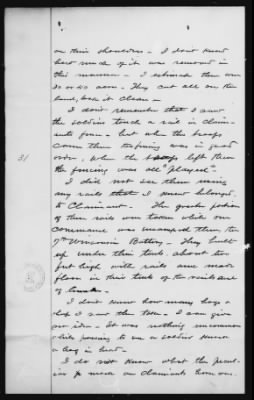 on their shoulders – I don't know
how much of it was removed in
this manner – I estimate there were
30 or 40 acres – They cut all on the
land, took it clean –
I don't remember that I saw
the soldiers touch a rail in Claim-
ants farm – but when the troops
came there the fencing was in good
order, When the troops left there
31
the fencing was all "played" –
I did not see them using
any rails that I knew belonged
to Claimant – The greater portion
of these rails were taken while our
command was encamped there, the
7th Wisconsin Battery – They built
up under their tents about two
feet high with rails and made
floors in their tents of the rails and
of
I don't know how many hogs &
I saw them – I can give
no idea – It was nothing uncommon
while passing to see a soldier
a hog in
I do not know what the
made on Claimants farm